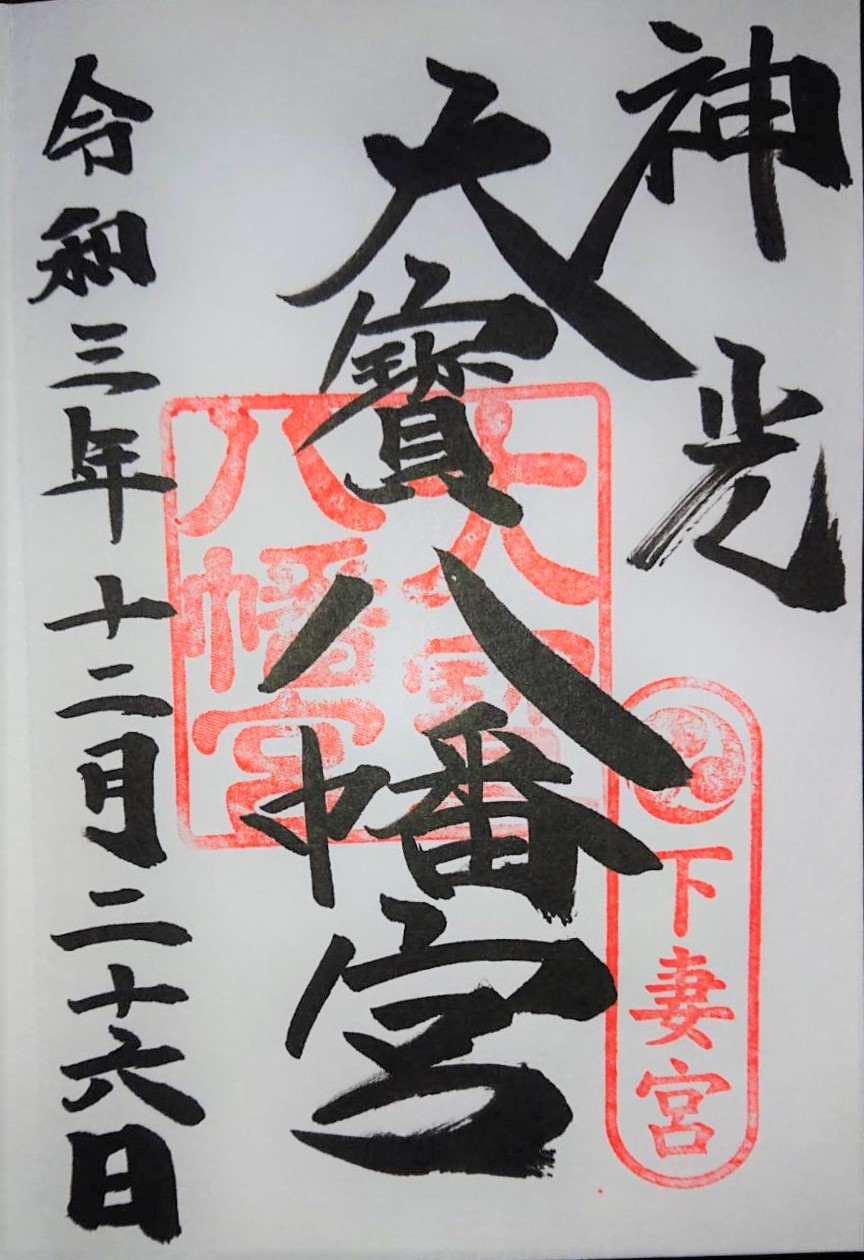 神光
大寶八幡宮
大寶
八幡宮
下妻宮
令和三年十二月二十六日